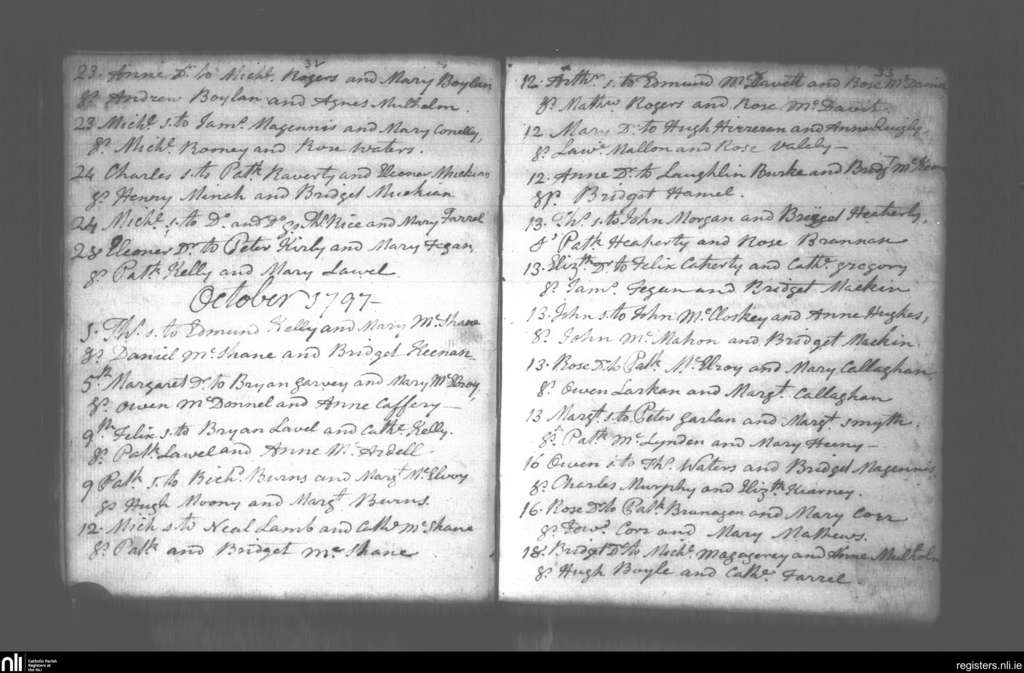 32
23. Anne Dr. to Michl. Rogers and Mary Boylan
Sp. Andrew Boylan and Agnes Mulholm.
23 Michl. s. to Jams. Magennis and Mary Conelly,
Sp. Michl. Romey and Rose Waters.
24 Charles s. to Patk. Raverty and Eleoner Muckian
Sp. Henry Minah and Bridget Muckian
24 Michl. s. to Do. and Do. Sp. Ths. Rice and Mary Farrel
28 Eleoner Dr. to Peter Kirby and Mary Fegan,
Sp. Patk. Kelly and Mary Lawel
October 1797
5. Ths. s. to Edmund Kelly and Mary McShane
Sp. Daniel McShane and Bridget Keenan
5th. Margaret Dr. to Bryan Garvey and Mary McElroy
Sp. Owen McDonnel and Anne Caffery
9th. Felix s. to Bryan Lavel and Cathe. Kelly.
Sp. Patk. Lawel and Anne McArdell
9 Patk. s. to Richd. Burns and Margt. McElroy
Sp. Hugh Moony and Margt. Burns.
12. Mich s. to Neal Lamb and Cathe. McShane
Sp. Patk. and Bridget McShane
33
12. Arthr. s. to Edmund McDavitt and Rose
Sp. Mathw. Rogers and Rose McDavit
12 Mary Dr. to Hugh and Anne Quigly,
Sp. Lawe. Mallon and Rose Valely
12. Anne Dr. to Laughlin Burke and Bridgt.
Sp. Bridget Hamel.
13. Ths. s. to John Morgan and Briged Heatherly,
Sp. Patk. Heaherty and Rose Brannan
13. Elizth. Dr. to Felix Caherty and Cathe. Gregory
Sp. Jams. Fegan and Bridget Mackin
13. John s. to John McCloskey and Anne Hughes,
Sp. John McMahon and Bridget Mackin
13. Rose Dr. to Patk. McElroy and Mary Callaghan,
Sp. Owen Larkan and Margt. Callaghan
13 Margt. s. to Peter Garlan and Margt. Smyth.
Sp. Patk. McLynden and Mary Heeny
16 Owen s. to Ths. Waters and Bridget Magennis
Sp. Charles Murphy and Elizth. Kearney.
16. Rose Dr. to Patk. Branagan and Mary Corr
Sp. Edwd. Corr and Mary Mathews.
18. Bridget Dr. to Michl. Magagerey and Anne Mulholm
Sp. Hugh Boyle and Cathe. Farrel
nli Catholic Parish
Registers at
the NLI
registers.nli.ie